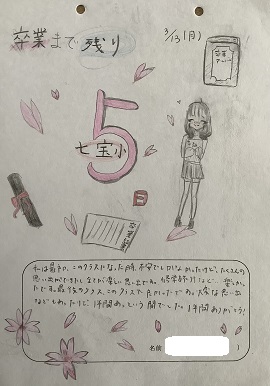 卒業まで残り
3/13(月)
卒業アルバム
5
七宝小
日
卒業証書
私は最初、このクラスになった時、不安でしかなかったけど、たくさんの
思い出ができたし、全てが楽しい思い出です。修学旅行など
たです。最後のクラス、このクラスで良かったです。大変な思い出
などもあったけど1年間あっという間でした。1年間ありがとう!
名前